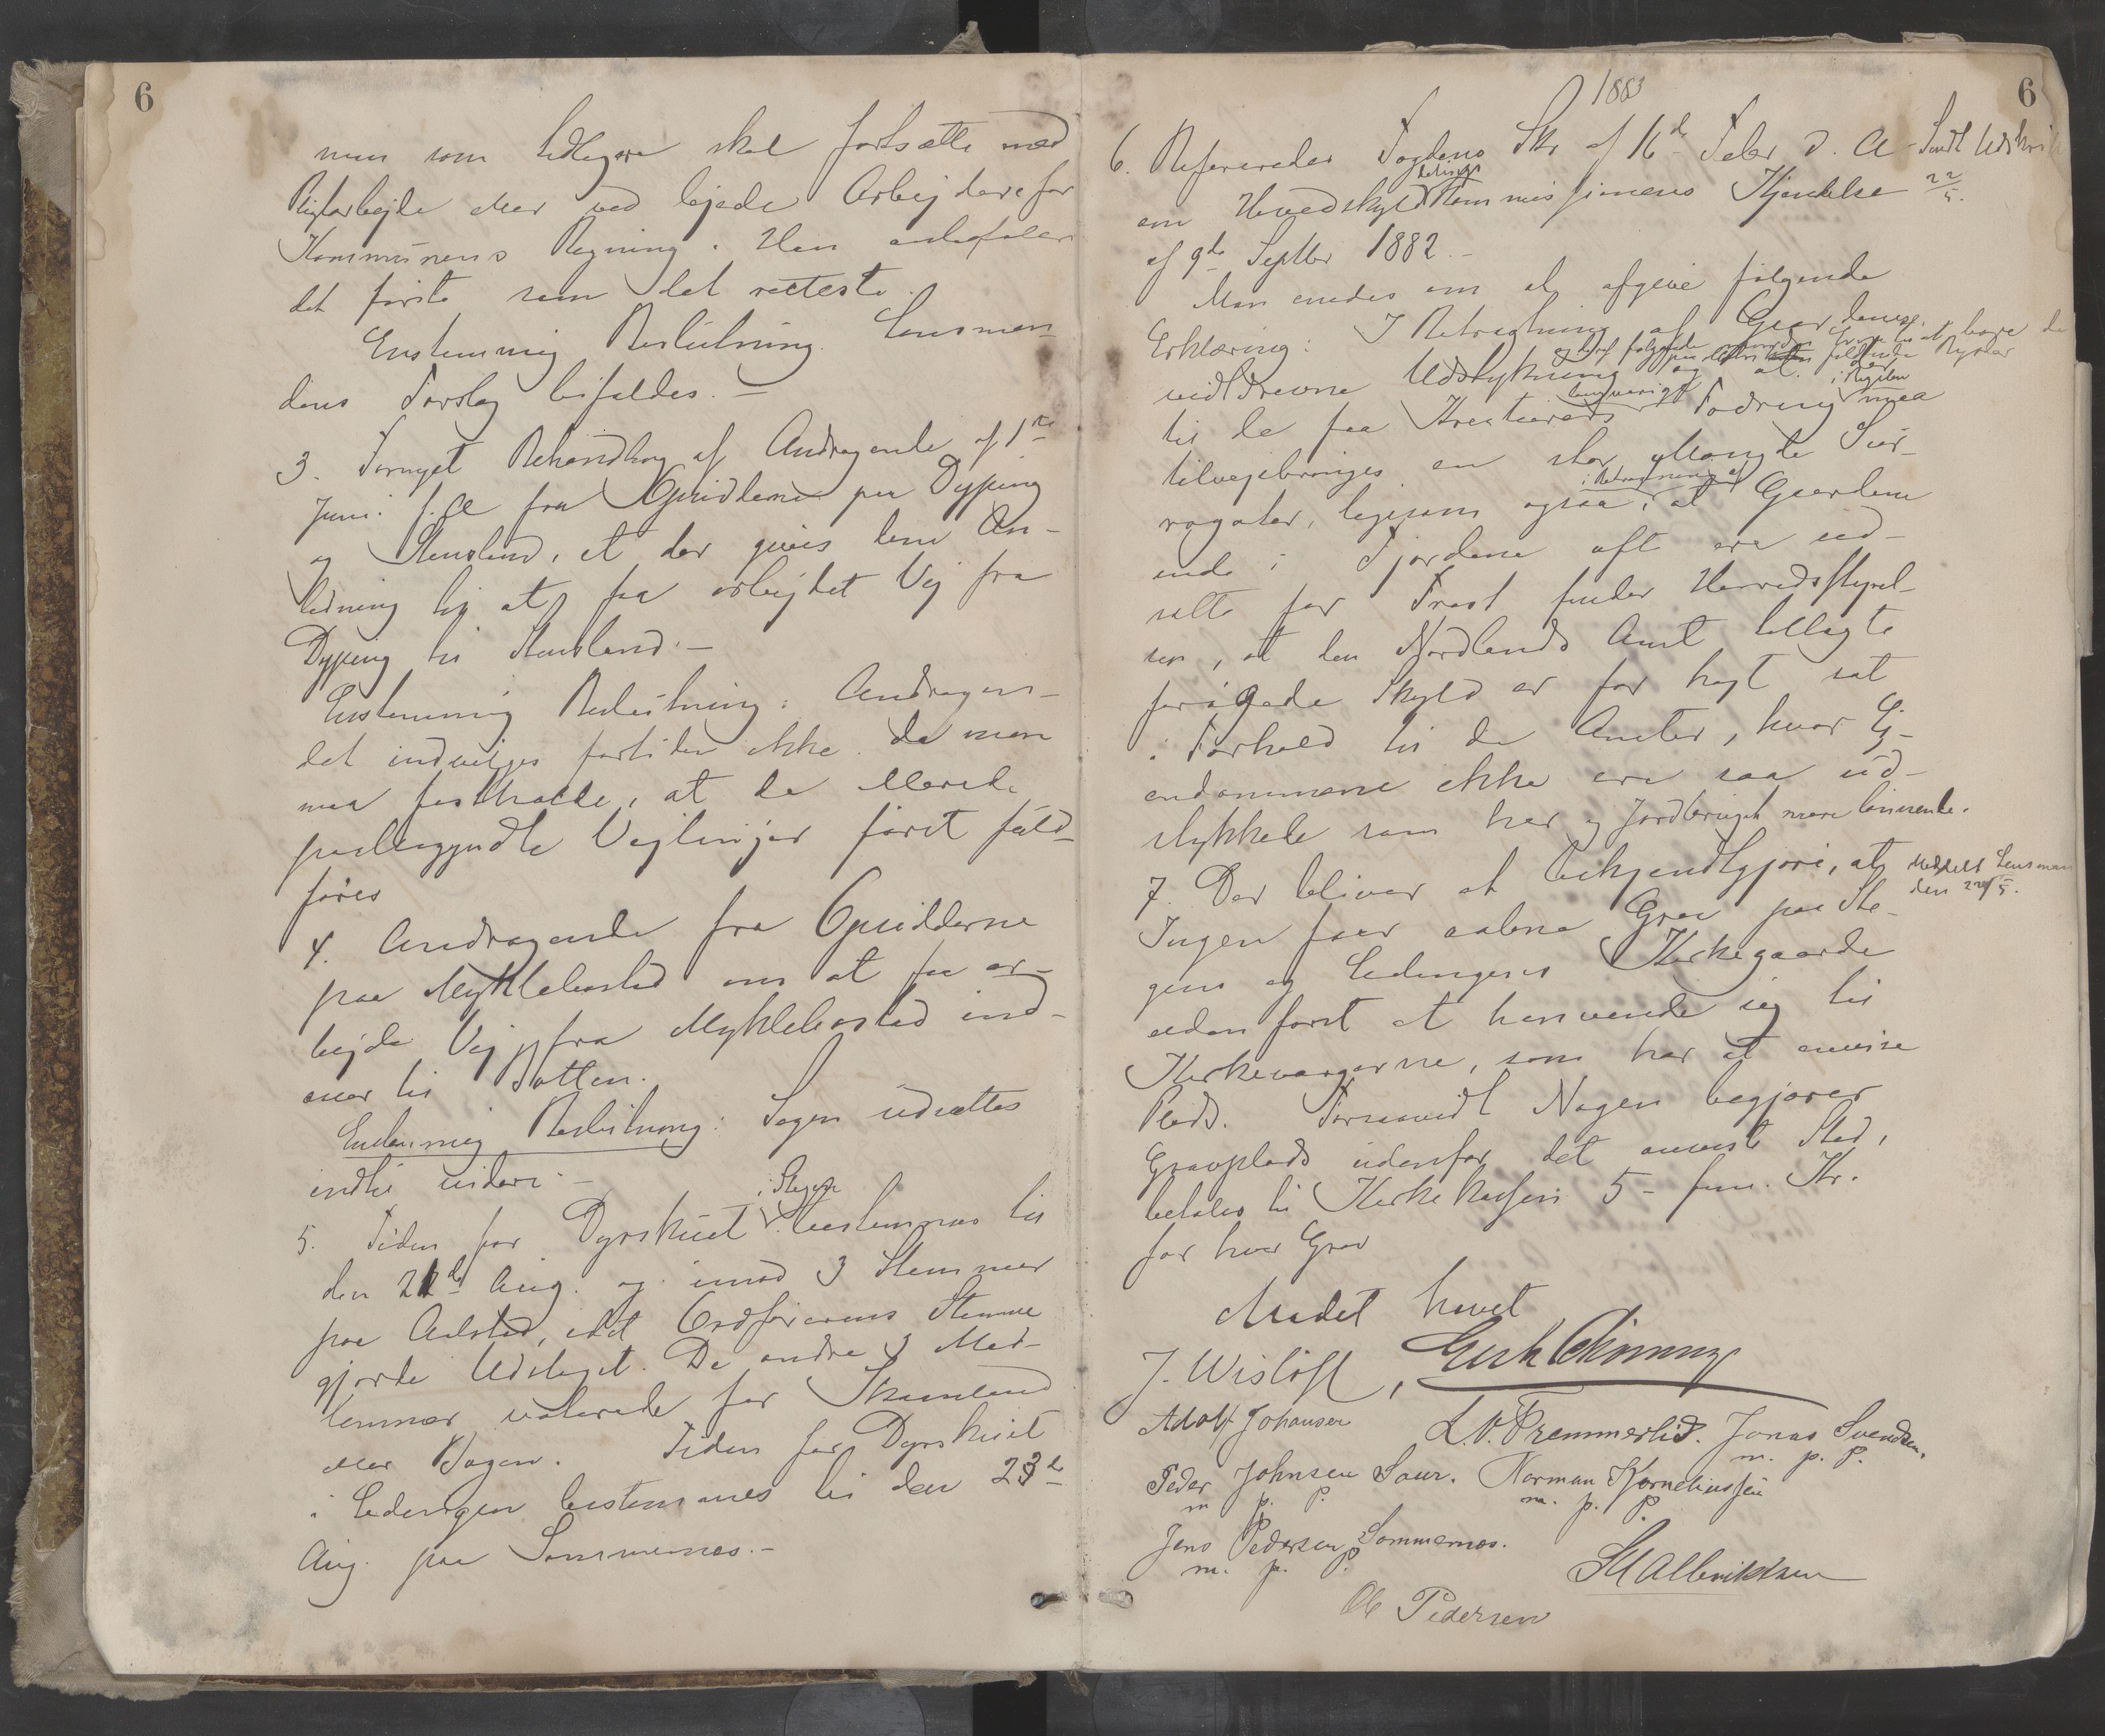 6
men som tidligere skal fortsætte med
Pligtarbejde eller ved lejede Arbejdere for
Kommunens Regning. Han anbefaler
det første som det retteste.
Enstemmig Beslutning: Lensman-
dens Forslag bifaldes. –
3. Fornyet Behandling af Andragende af 1ste
Juni f. A. fra Opsidderne paa Dyping
og Stensland, at der gives dem An-
ledning til at faa arbejdet Vej fra
Dyping til Stensland. –
Enstemmig Beslutning: Andragen-
det indvilges fortiden ikke da man
maa fastholde, at de allerede
paabegyndte Vejlinjer først fuld-
føres
4. Andragende fra Opsidderne
paa Myklebostad om at faa ar-
bejde Vej fra Myklebostad ind-
over til
Enstemmig Beslutning: Sagen udsættes
indtil videre –
i Stegen
5. Tiden for Dyrskuet bestemmes til
den Aug. og imod 3 Stemmer
paa idet Ordførerens Stemme
gjorde Udslaget. De andre 3 Med-
lemmer voterede for Skaanland
eller Bogen. Tiden for Dyrskuet
i Ledingen bestemmes til den 23de
Aug. paa Sommernes. –
1883
6
6. Refereredes Fogdens Skr. af 16de Febr d. A. Sendt Udskrift
om Herredsskyld Kommissionens Kjendelse 22/5.
af 9de Septbr 1882. –
Man enedes om at afgive følgende
Erklæring: I Betragtning af Gaardenes
vidtdrevne Udstykning og at der
til de faa Kreaturers Fodring i Regelen maa
tilvejebringes en stor Mængde Sur-
i Betragtning af
rogater, ligesom ogsaa at Gaardene
inde i Fjordene oft ere ud-
satte for Frost finder Herredsstyrel-
sen, at den Nordlands Amt tillagte
forøgede Skyld er for højt sat
i Forhold til de Amter, hvor Ej-
endommene ikke ere saa ud-
stykkede som her og Jordbruget mere lønnende.
7. Der bliver at bekjendtgjøre, at Meddelt Lensman
den 22/5.
Ingen faar aabne Grav paa Ste-
gens og Ledingens Kirkegaarde
uden først at henvende sig til
Kirkeværgerne, som har at anvise
Plads. Forsaavidt Nogen begjærer
Gravplads udenfor det anviste Sted,
betales til Kirkekassen 5 – fem. Kr.
for hver Grav
Mødet hævet
J. Wisløff,
Adolf Johansen L. P. Tremmerlid. Jonas Svendsen.
m. p. P.
Peder Johnsen Saur. Norman Kornelius sen
m p. P. m. p. P.
Jens Pedersen Sommernes.
m. p. P.
Ole Pedersen